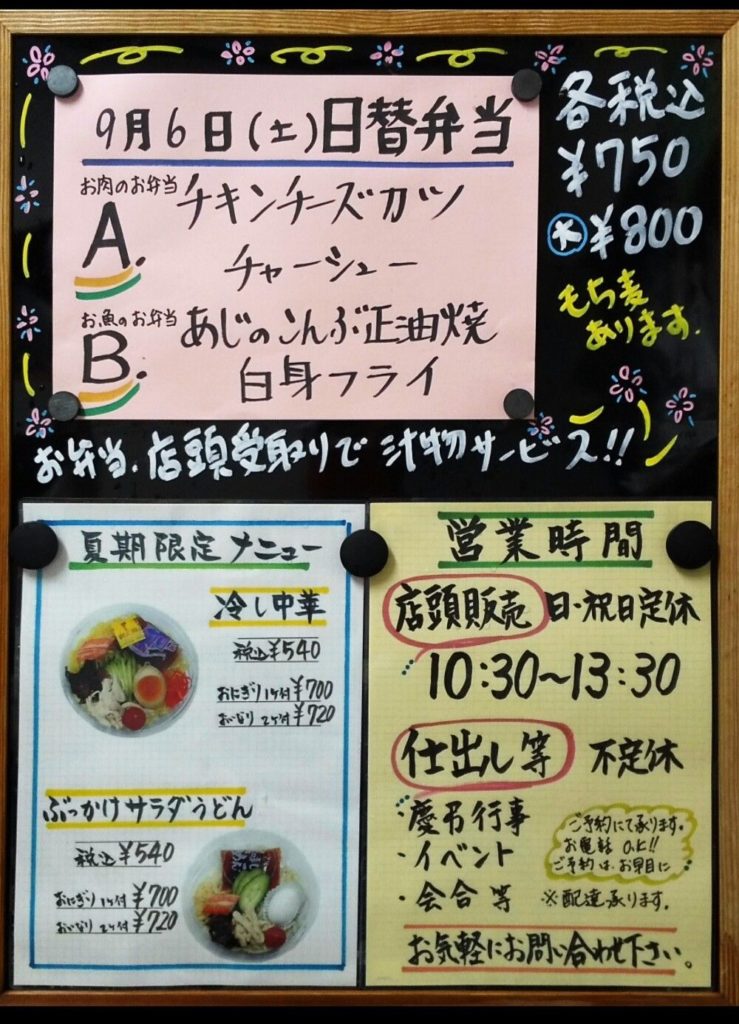 9月6日(土)日替弁当
お肉のお弁当
A.
チキンチーズカツ
チャーシュー
お魚のお弁当
B.
あじのこんぶ正油焼
白身フライ
各税込
¥750
大¥800
もち麦
あります.
お弁当.店頭受取りで汁物サービス!!
夏期限定メニュー
冷し中華
税込¥540
おにぎり1ヶ付¥700
おいなり2ヶ付¥720
ぶっかけサラダうどん
税込¥540
おにぎり1ヶ付¥700
おいなり2ヶ付¥720
営業時間
店頭販売 日・祝日定休
10:30~13:30
仕出し等 不定休
・慶弔行事
・イベント
・会合等
ご予約にて承ります。
お電話O.K!!
ご予約は、お早目に
※配達承ります。
お気軽にお問い合わせ下さい。